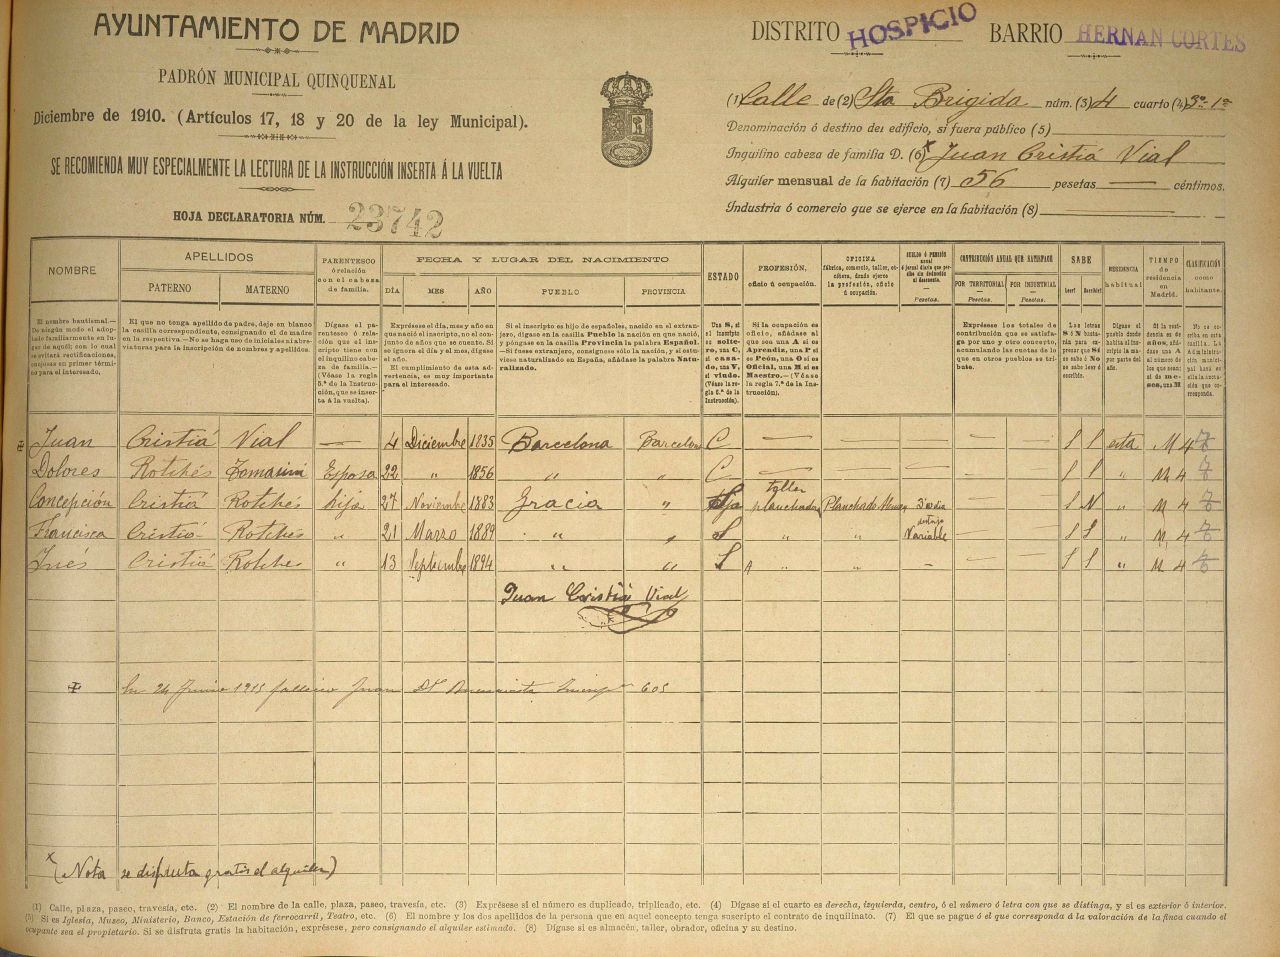 AYUNTAMIENTO DE MADRID
PADRÓN MUNICIPAL QUINQUENAL
Diciembre de 1910. (Artículos 17, 18 y 20 de la ley Municipal).
SE RECOMIENDA MUY ESPECIALMENTE LA LECTURA DE LA INSTRUCCIÓN INSERTA Á LA VUELTA
HOJA DECLARATORIA NÚM. 23742
DISTRITO HOSPICIO BARRIO HERNAN CORTES
(1) Calle de (2) Sta Brigida núm. (3) 4 cuarto (4) 3º 1ª
Denominación ó destino del edificio, si fuera público (5)
Inquilino cabeza de familia D. (6) Juan Cristiá Vial
Alquiler mensual de la habitación (7) 56 pesetas — céntimos.
Industria ó comercio que se ejerce en la habitación (8)
NOMBRE APELLIDOS PATERNO MATERNO
PARENTESCO ó relación con el cabeza de familia.
FECHA Y LUGAR DEL NACIMIENTO
DÍA MES AÑO PUEBLO PROVINCIA
ESTADO
PROFESIÓN, oficio ó ocupación.
OFICINA fábrica, comercio, taller, etcétera, donde ejerce la profesión, oficio ó ocupación.
SUELDO Ó PENSIÓN anual ó jornal diario que percibe sin deducción ni descuento. — Pesetas.
CONTRIBUCIÓN ANUAL QUE SATISFACE
POR TERRITORIAL Pesetas. POR INDUSTRIAL Pesetas.
SABE Leer? Escribir?
RESIDENCIA habitual
TIEMPO de residencia en Madrid.
CLASIFICACIÓN como habitante.
El que no tenga apellido de padre, deje en blanco la casilla correspondiente, consignando el de madre en la respectiva.—No se haga uso de iniciales ni abreviaturas para la inscripción de nombres y apellidos.
Dígase el parentesco ó relación que el inscripto tiene con el inquilino cabeza de familia.—(Véase la regla 5.ª de la Instrucción, que se inserta á la vuelta).
Expréses el día, mes y año en que nació el inscripto, no el conjunto de años que se cuente. Si se ignora el día y el mes, dígase el año.
El cumplimiento de esta advertencia, es muy importante para el interesado.
Si el inscripto es hijo de españoles, nacido en el extranjero, dígase en la casilla Pueblo la nación en que nació, y póngase en la casilla Provincia la palabra Español.
—Si fuese extranjero, consígnese sólo la nación, y si estuviese naturalizado en España, añádase la palabra Naturalizado.
Una S, si el inscripto es soltero, una C, si es casado, una V, si viudo. (Véase la regla 6.ª de la Instrucción).
Si la ocupación es oficio, añádase al que sea una A si es Aprendiz, una P si es Peón, una O si es Oficial, una M si es Maestro.—(Véase la regla 7.ª de la Instrucción).
Expréses los totales de contribución que se satisfaga por uno y otro concepto, acumulando las cuotas de lo que en otros pueblos se tribute.
Juan Cristiá Vial — 4 Diciembre 1835 Barcelona Barcelona C — — — — — S S esta M 4
Dolores Rotchés Tomasini Esposa 22 " 1856 " " C — — — — — S S " M 4
Concepción Cristiá Rotchés hija 27 Noviembre 1883 Gracia " S taller planchadora Planchado — S N " M 4
Francisca Cristiá Rotchés " 21 Marzo 1889 " " S " " destajo Variable — — S S " M 4
Inés Cristiá Rotchés " 13 Septiembre 1894 " " S A " " — — — S S " M 4
Juan Cristiá Vial
En 24 Junio 1915 fallecio Juan 605
(Nota se disfruta gratis el alquiler)
(1) Calle, plaza, paseo, travesía, etc. (2) El nombre de la calle, plaza, paseo, travesía, etc. (3) Exprésese si el número es duplicado, triplicado, etc. (4) Dígase si el cuarto es derecha, izquierda, centro, ó el número ó letra con que se distinga, y si es exterior ó interior.
(5) Si es Iglesia, Museo, Ministerio, Banco, Estación de ferrocarril, Teatro, etc. (6) El nombre y los dos apellidos de la persona que en aquel concepto tenga suscripto el contrato de inquilinato. (7) El que se pague ó el que corresponda á la valoración de la finca cuando el
ocupante sea el propietario. Si se disfruta gratis la habitación, exprésese, pero consignando el alquiler estimado. (8) Dígase si es almacén, taller, obrador, oficina y su destino.